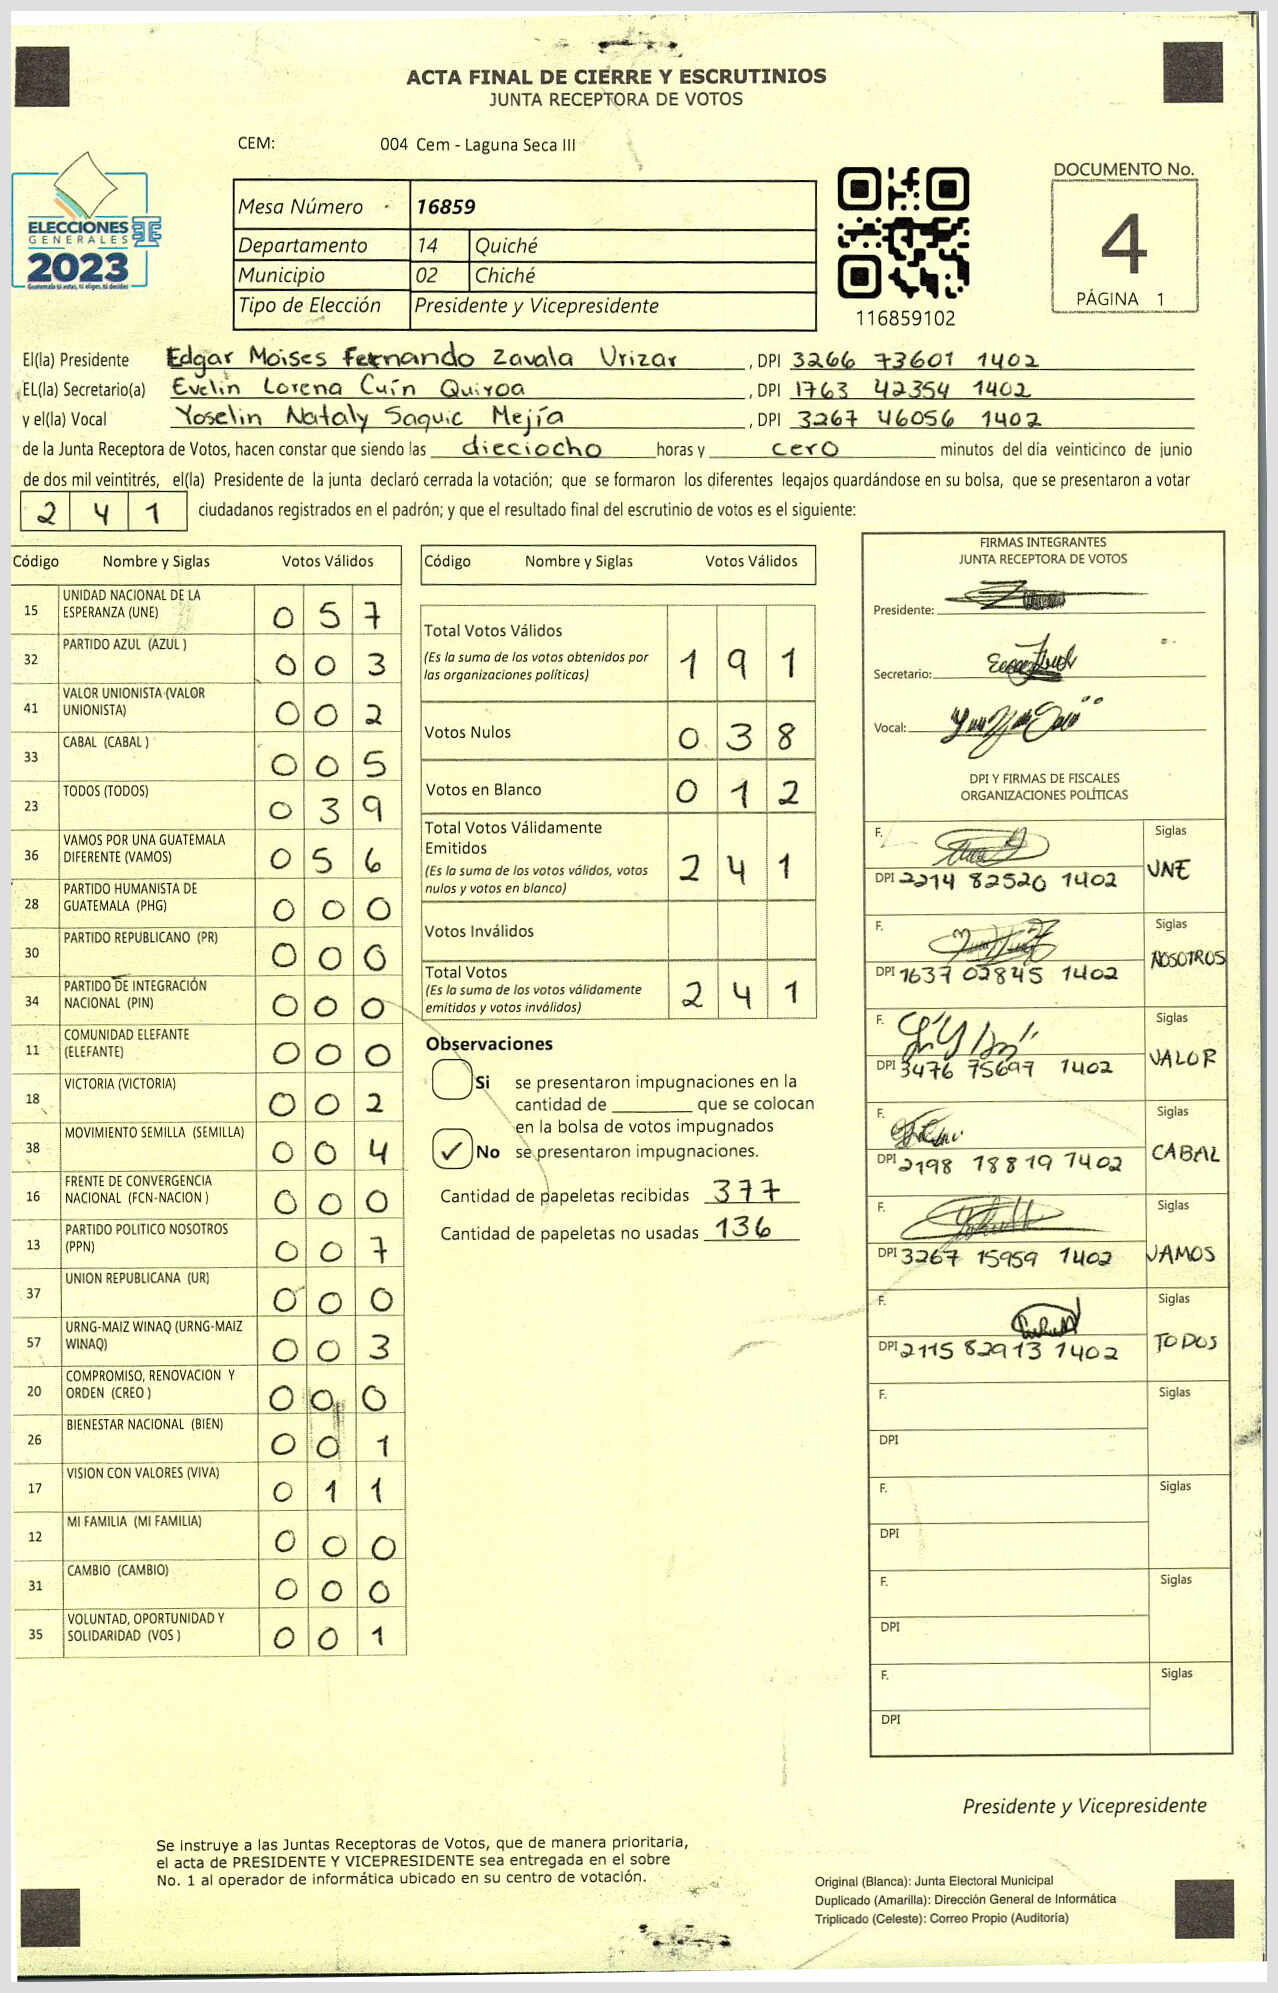 ACTA FINAL DE CIERRE Y ESCRUTINIOS
JUNTA RECEPTORA DE VOTOS
CEM: 004 Cem - Laguna Seca III
ELECCIONES
GENERALES
2023
Guatemala tú votas, tú eliges, tú decides
Mesa Número 16859
Departamento 14 Quiché
Municipio 02 Chiché
Tipo de Elección Presidente y Vicepresidente
116859102
DOCUMENTO No.
4
PÁGINA 1
El(la) Presidente Edgar Moises Fernando Zavala Urizar, DPI 3266 73601 1402
EL(la) Secretario(a) Evelin Lorena Cuín Quiroa, DPI 1763 42354 1402
y el(la) Vocal Yoselin Nataly Saquic Mejía, DPI 3267 46056 1402
de la Junta Receptora de Votos, hacen constar que siendo las dieciocho horas y cero minutos del día veinticinco de junio
de dos mil veintitrés, el(la) Presidente de la junta declaró cerrada la votación; que se formaron los diferentes legajos guardándose en su bolsa, que se presentaron a votar
241 ciudadanos registrados en el padrón; y que el resultado final del escrutinio de votos es el siguiente:
Código Nombre y Siglas Votos Válidos
15 UNIDAD NACIONAL DE LA ESPERANZA (UNE) 057
32 PARTIDO AZUL (AZUL ) 003
41 VALOR UNIONISTA (VALOR UNIONISTA) 002
33 CABAL (CABAL ) 005
23 TODOS (TODOS) 039
36 VAMOS POR UNA GUATEMALA DIFERENTE (VAMOS) 056
28 PARTIDO HUMANISTA DE GUATEMALA (PHG) 000
30 PARTIDO REPUBLICANO (PR) 000
34 PARTIDO DE INTEGRACIÓN NACIONAL (PIN) 000
11 COMUNIDAD ELEFANTE (ELEFANTE) 000
18 VICTORIA (VICTORIA) 002
38 MOVIMIENTO SEMILLA (SEMILLA) 004
16 FRENTE DE CONVERGENCIA NACIONAL (FCN-NACION ) 000
13 PARTIDO POLITICO NOSOTROS (PPN) 007
37 UNION REPUBLICANA (UR) 000
57 URNG-MAIZ WINAQ (URNG-MAIZ WINAQ) 003
20 COMPROMISO, RENOVACION Y ORDEN (CREO ) 000
26 BIENESTAR NACIONAL (BIEN) 001
17 VISION CON VALORES (VIVA) 011
12 MI FAMILIA (MI FAMILIA) 000
31 CAMBIO (CAMBIO) 000
35 VOLUNTAD, OPORTUNIDAD Y SOLIDARIDAD (VOS ) 001
Código Nombre y Siglas Votos Válidos
Total Votos Válidos 191
(Es la suma de los votos obtenidos por las organizaciones políticas)
Votos Nulos 038
Votos en Blanco 012
Total Votos Válidamente Emitidos 241
(Es la suma de los votos válidos, votos nulos y votos en blanco)
Votos Inválidos
Total Votos 241
(Es la suma de los votos válidamente emitidos y votos inválidos)
Observaciones
Si se presentaron impugnaciones en la
cantidad de ________ que se colocan
en la bolsa de votos impugnados
✓ No se presentaron impugnaciones.
Cantidad de papeletas recibidas 377
Cantidad de papeletas no usadas 136
FIRMAS INTEGRANTES
JUNTA RECEPTORA DE VOTOS
Presidente:
Secretario:
Vocal:
DPI Y FIRMAS DE FISCALES
ORGANIZACIONES POLÍTICAS
F. Siglas
DPI 2214 82520 1402 UNE
F. Siglas
DPI 1637 02845 1402 NOSOTROS
F. Siglas
DPI 3476 75697 1402 VALOR
F. Siglas
DPI 2198 18819 1402 CABAL
F. Siglas
DPI 3267 15959 1402 VAMOS
F. Siglas
DPI 2115 82913 1402 TODOS
F. Siglas
DPI
F. Siglas
DPI
F. Siglas
DPI
F. Siglas
DPI
Presidente y Vicepresidente
Se instruye a las Juntas Receptoras de Votos, que de manera prioritaria,
el acta de PRESIDENTE Y VICEPRESIDENTE sea entregada en el sobre
No. 1 al operador de informática ubicado en su centro de votación.
Original (Blanca): Junta Electoral Municipal
Duplicado (Amarilla): Dirección General de Informática
Triplicado (Celeste): Correo Propio (Auditoría)